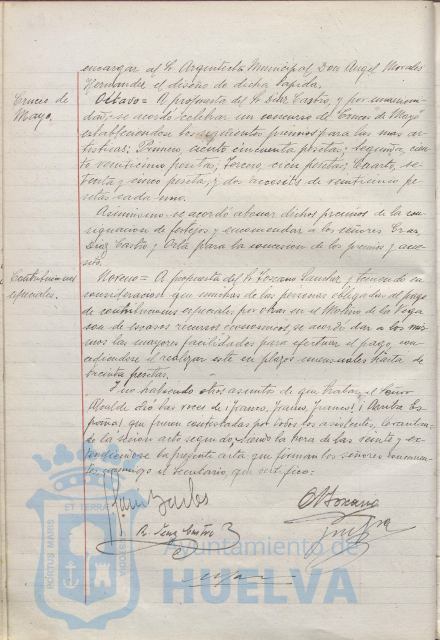 encargar al Sr. Arquitecto Municipal Don Angel Morales
Hernandez el diseño de dicha lápida.
Cruces de
Mayo.
Octavo = A propuesta del Sr. Diaz Castro, y por unanimi-
dad, se acordó celebrar un concurso de "Cruces de Mayo"
estableciendose los siguientes premios para las mas ar-
tisticas: Primero, ciento cincuenta pesetas; segundo, cien-
to veinticinco pesetas; Tercero, cien pesetas; Cuarto, se-
tenta y cinco pesetas, y dos accesits de veinticinco pe-
setas cada uno.
Asimismo se acordó abonar dichos premios de la con-
signacion de festejos y encomendar a los señores
Diaz Castro y para la concesion de los premios y acce-
sits.
Contribuciones
especiales.
Noveno = A propuesta del Sr. Lozano Sanchez y teniendo en
consideracion que muchas de las personas obligadas al pago
de contribuciones especiales por obras en el Molino de la Vega
son de escasos recursos economicos, se acordó dar a los mis-
mos las mayores facilidades para efectuar el pago, con-
cediendose el realizar este en plazos mensuales hasta de
treinta pesetas.
Y no habiendo otros asuntos de que tratar, el Señor
Alcalde dió las voces de ¡Franco, Franco, Franco! ¡Arriba Es-
paña! que fueron contestadas por todos los asistentes, levantan-
do la sesion acto seguido, siendo la hora de las veinte y ex-
tendiendose la presente acta que firman los señores concurren-
tes conmigo el Secretario, que certifico:
R. Diaz Castro
Lozano
ET TERRAE
PORTUS MARIS
CUSTODIA
Ayuntamiento de
HUELVA